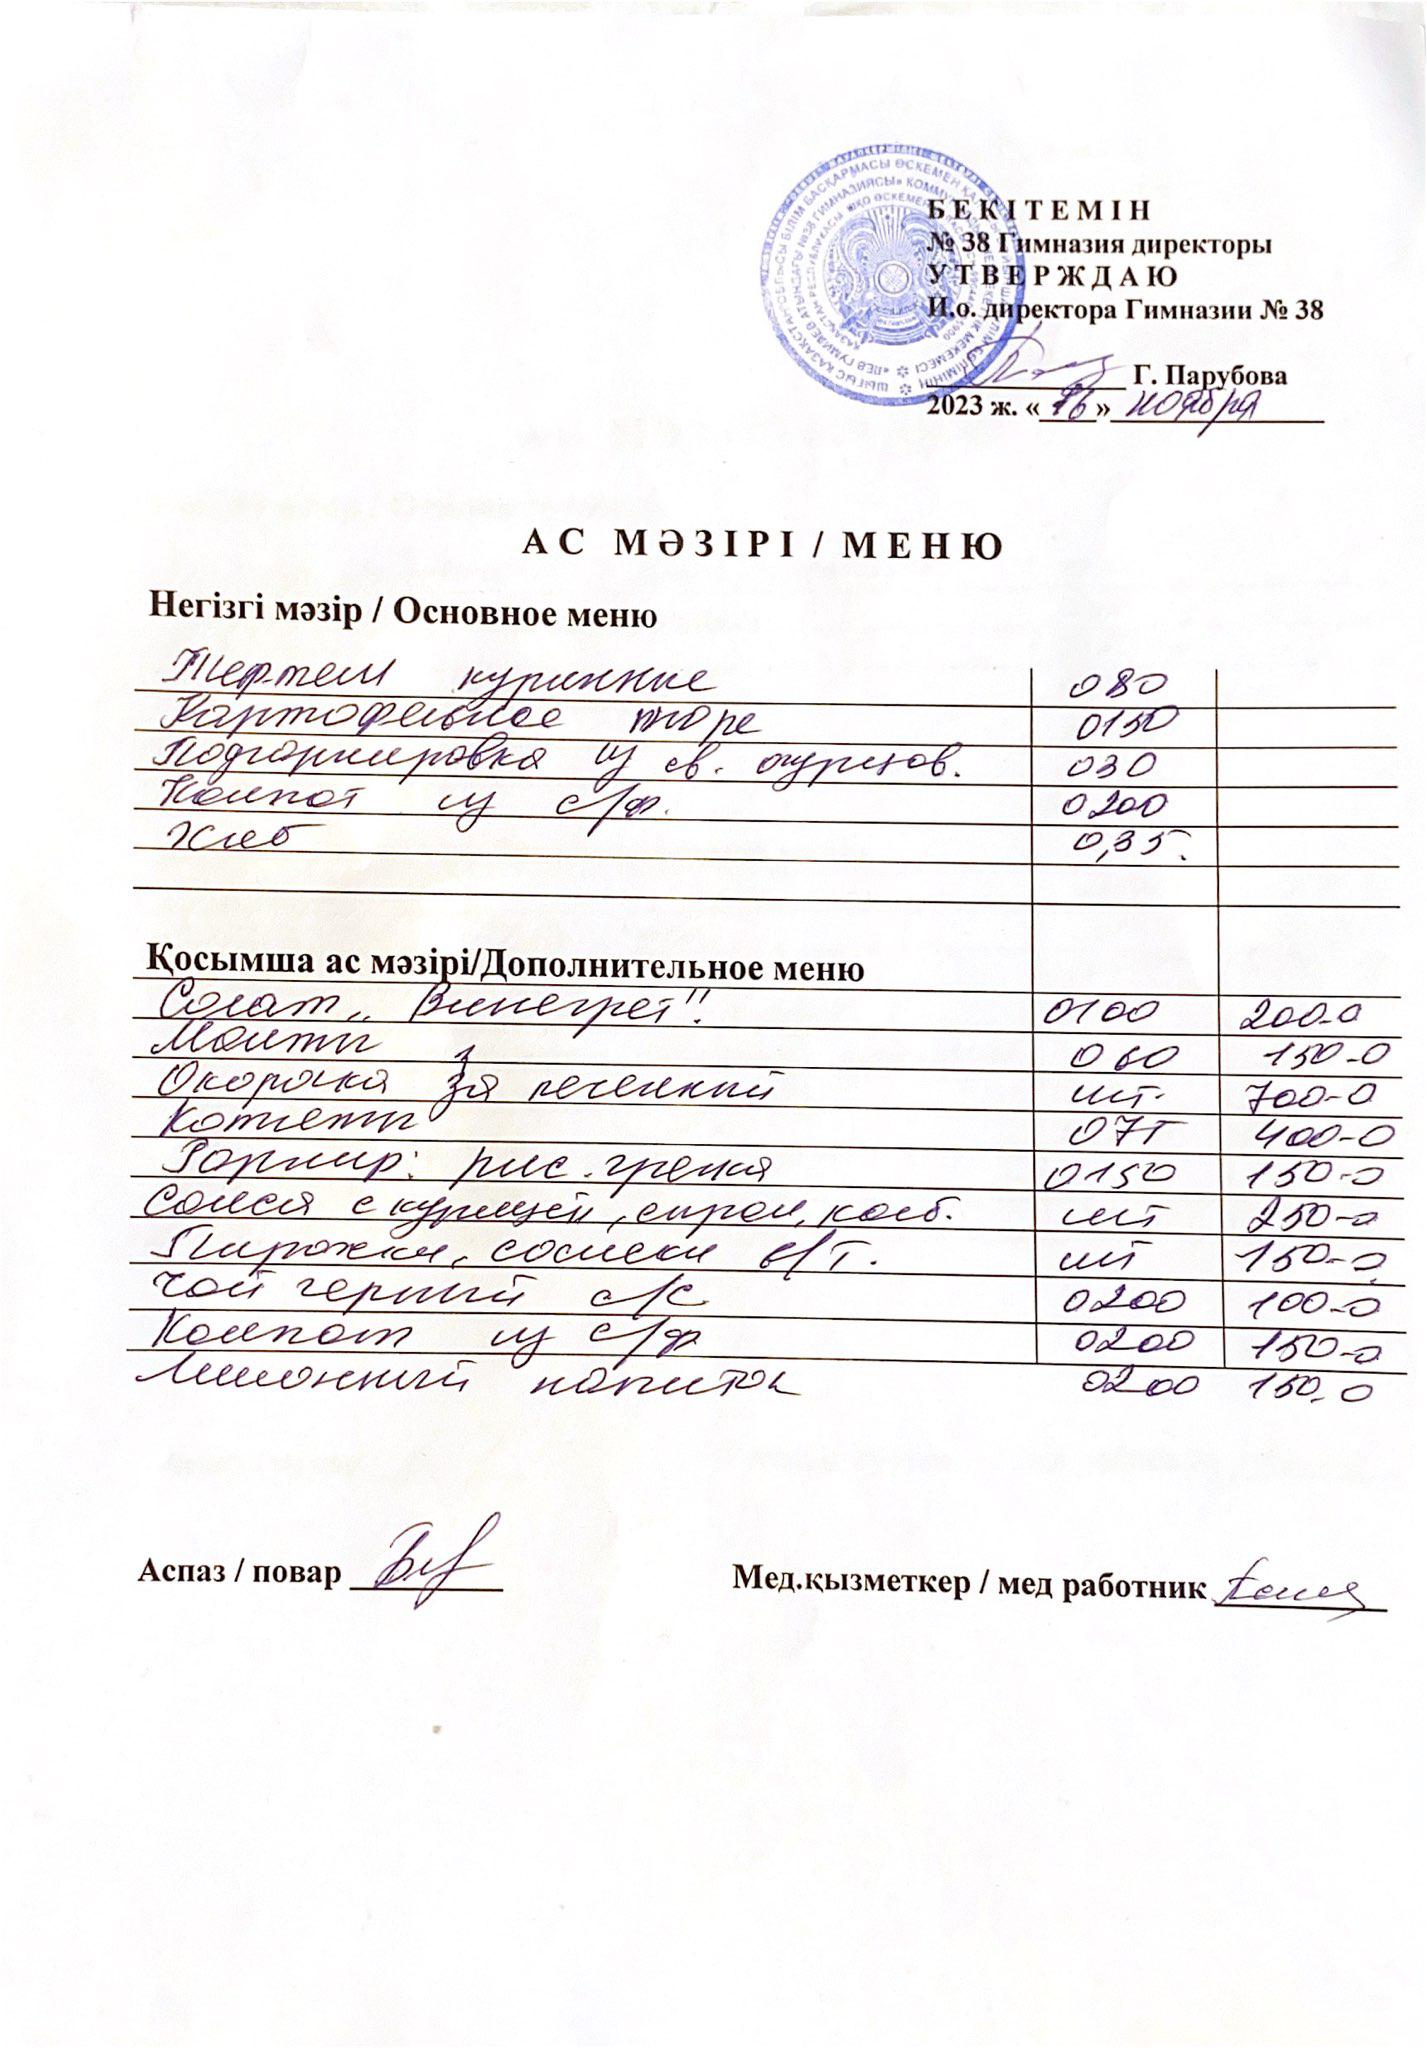 БЕКІТЕМІН
№ 38 Гимназия директоры
УТВЕРЖДАЮ
И.о. директора Гимназии № 38
Г. Парубова
2023 ж. «16» ноября
АС МӘЗІРІ / МЕНЮ
Негізгі мәзір / Основное меню
Тефтели куринные 080
Картофельное пюре 0150
Подгарнировка из св. огурцов. 030
Компот из с/ф. 0200
Хлеб 0,35.
Қосымша ас мәзірі/Дополнительное меню
Салат „Винегрет". 0100 200-0
Манты 060 150-0
Окорочка запеченный шт. 700-0
Котлеты 075 400-0
Гарнир: рис. гречка 0150 150-0
Самса с курицей, сыром, колб. шт 250-0
Пирожки, сосиски в/т. шт 150-0
Чай черный с/с 0200 100-0
Компот из с/ф 0200 150-0
Лимонный напиток 0200 150-0
Аспаз / повар
Мед.қызметкер / мед работник